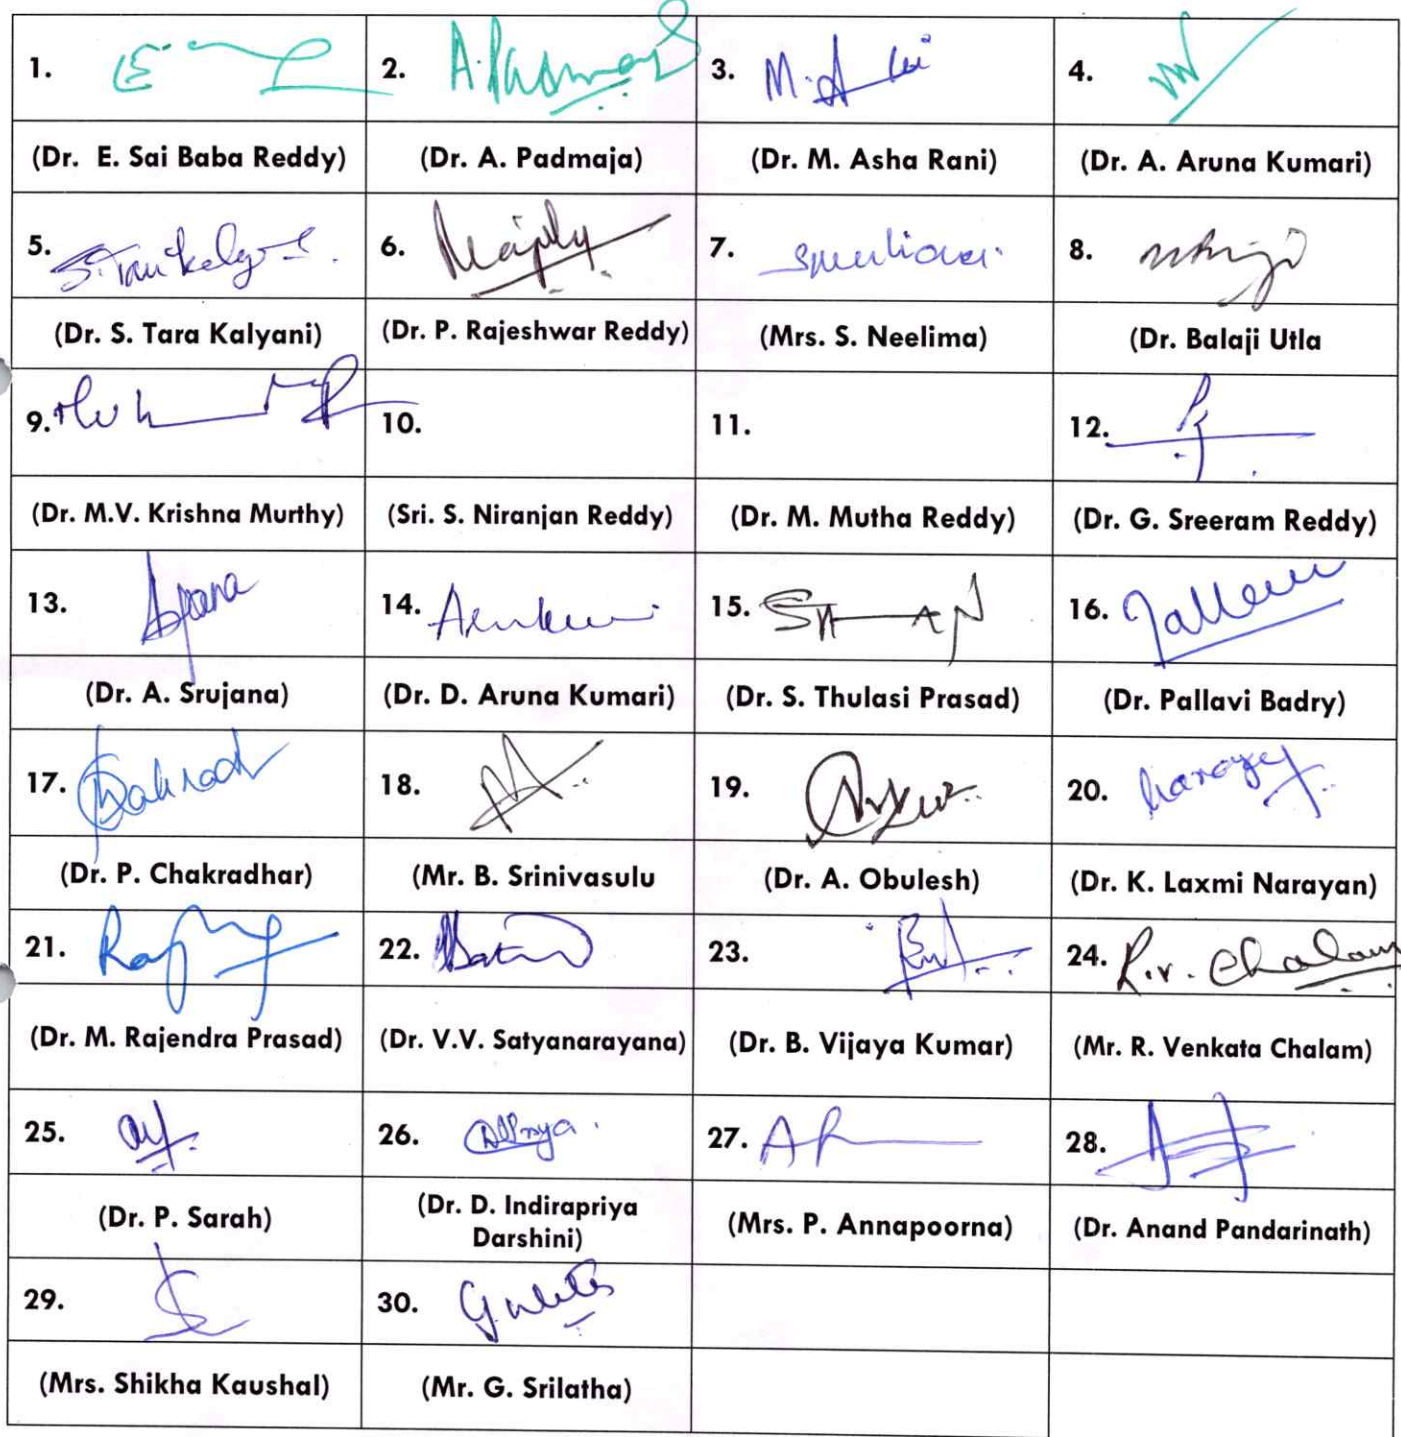 1. 2. A. Padmaja 3. 4.
(Dr. E. Sai Baba Reddy) (Dr. A. Padmaja) (Dr. M. Asha Rani) (Dr. A. Aruna Kumari)
5. S. Tara Kalyani 6. 7. 8.
(Dr. S. Tara Kalyani) (Dr. P. Rajeshwar Reddy) (Mrs. S. Neelima) (Dr. Balaji Utla
9. 10. 11. 12.
(Dr. M.V. Krishna Murthy) (Sri. S. Niranjan Reddy) (Dr. M. Mutha Reddy) (Dr. G. Sreeram Reddy)
13. 14. 15. 16.
(Dr. A. Srujana) (Dr. D. Aruna Kumari) (Dr. S. Thulasi Prasad) (Dr. Pallavi Badry)
17. 18. 19. 20.
(Dr. P. Chakradhar) (Mr. B. Srinivasulu (Dr. A. Obulesh) (Dr. K. Laxmi Narayan)
21. 22. 23. 24. R.V. Chalam
(Dr. M. Rajendra Prasad) (Dr. V.V. Satyanarayana) (Dr. B. Vijaya Kumar) (Mr. R. Venkata Chalam)
25. 26. 27. 28.
(Dr. P. Sarah) (Dr. D. Indirapriya Darshini) (Mrs. P. Annapoorna) (Dr. Anand Pandarinath)
29. 30.
(Mrs. Shikha Kaushal) (Mr. G. Srilatha)